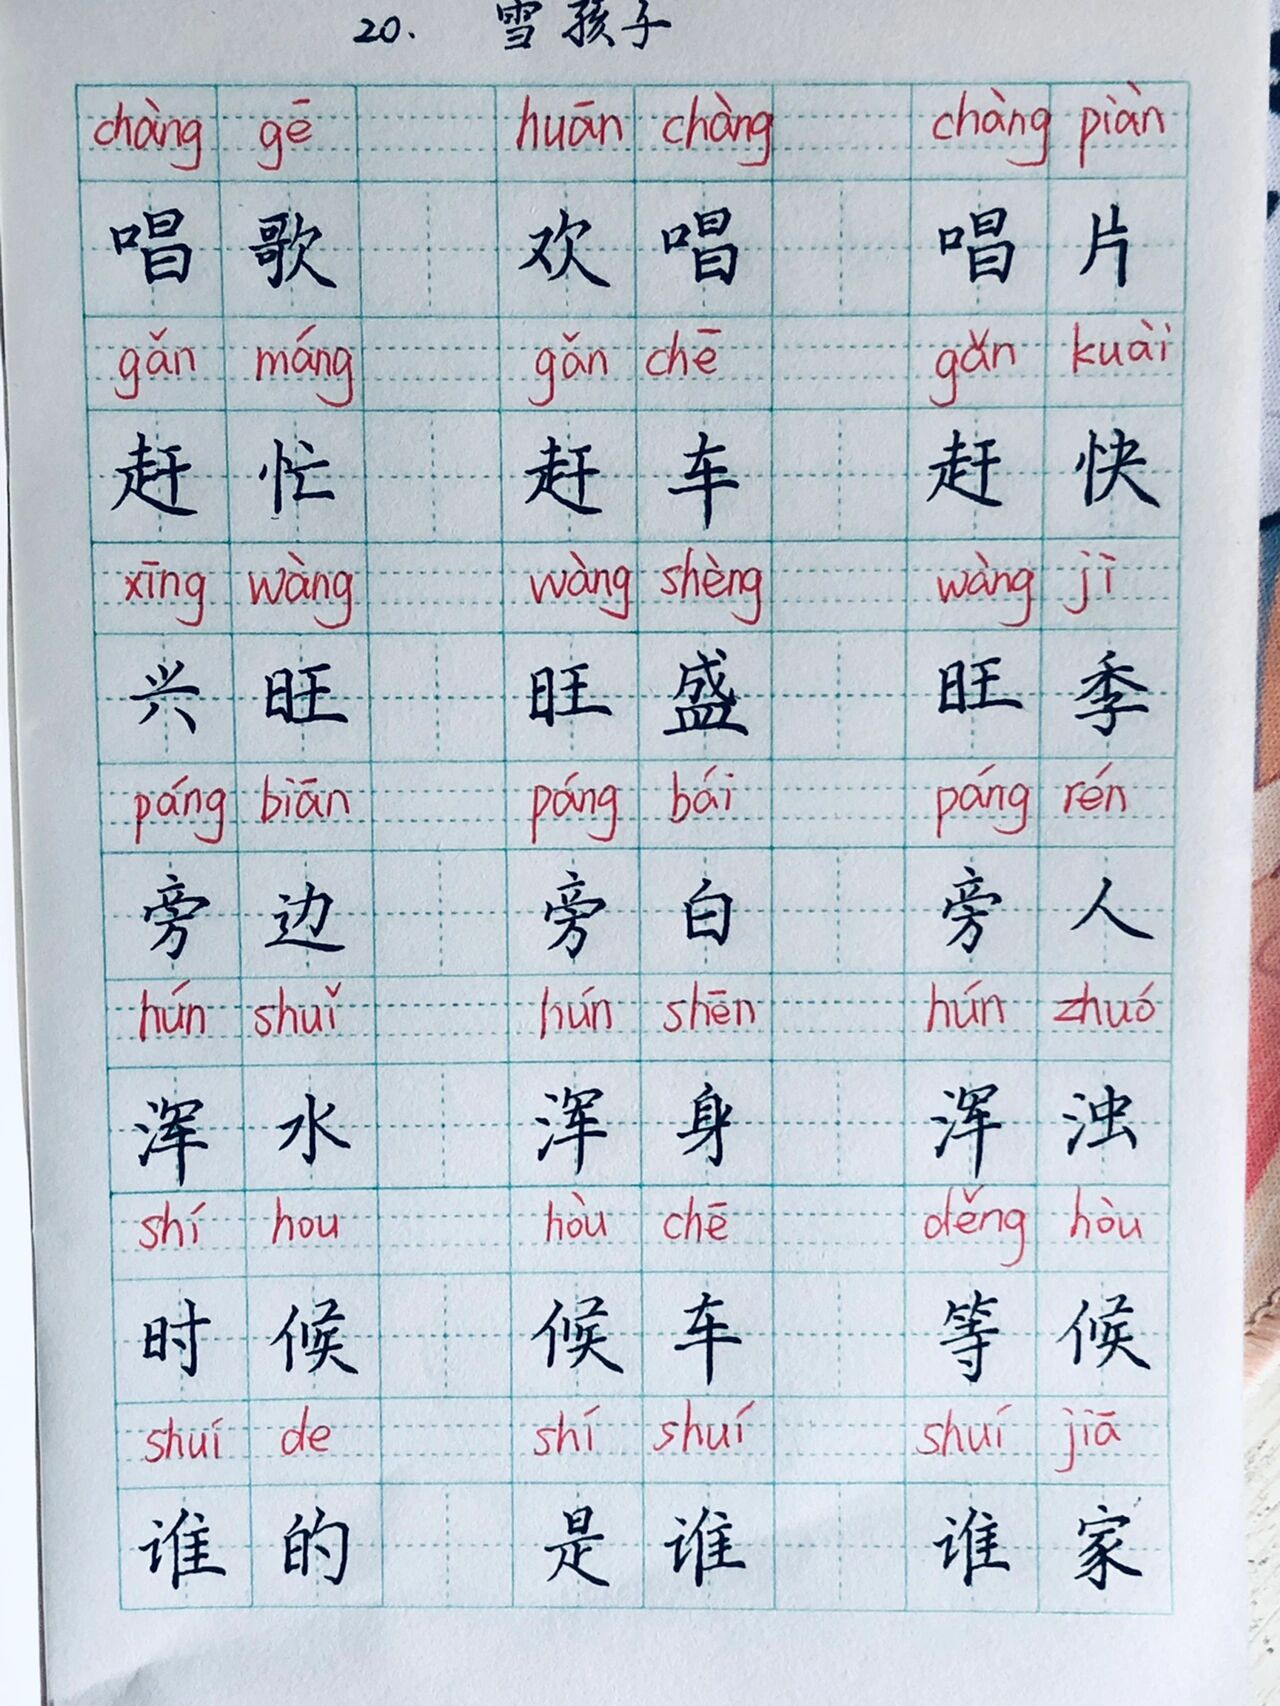 20. 雪孩子
chàng gē huān chàng chàng piàn
唱歌 欢唱 唱片
gǎn máng gǎn chē gǎn kuài
赶忙 赶车 赶快
xīng wàng wàng shèng wàng jì
兴旺 旺盛 旺季
páng biān páng bái páng rén
旁边 旁白 旁人
hún shuǐ hún shēn hún zhuó
浑水 浑身 浑浊
shí hou hòu chē děng hòu
时候 候车 等候
shuí de shí shuí shuí jiā
谁的 是谁 谁家